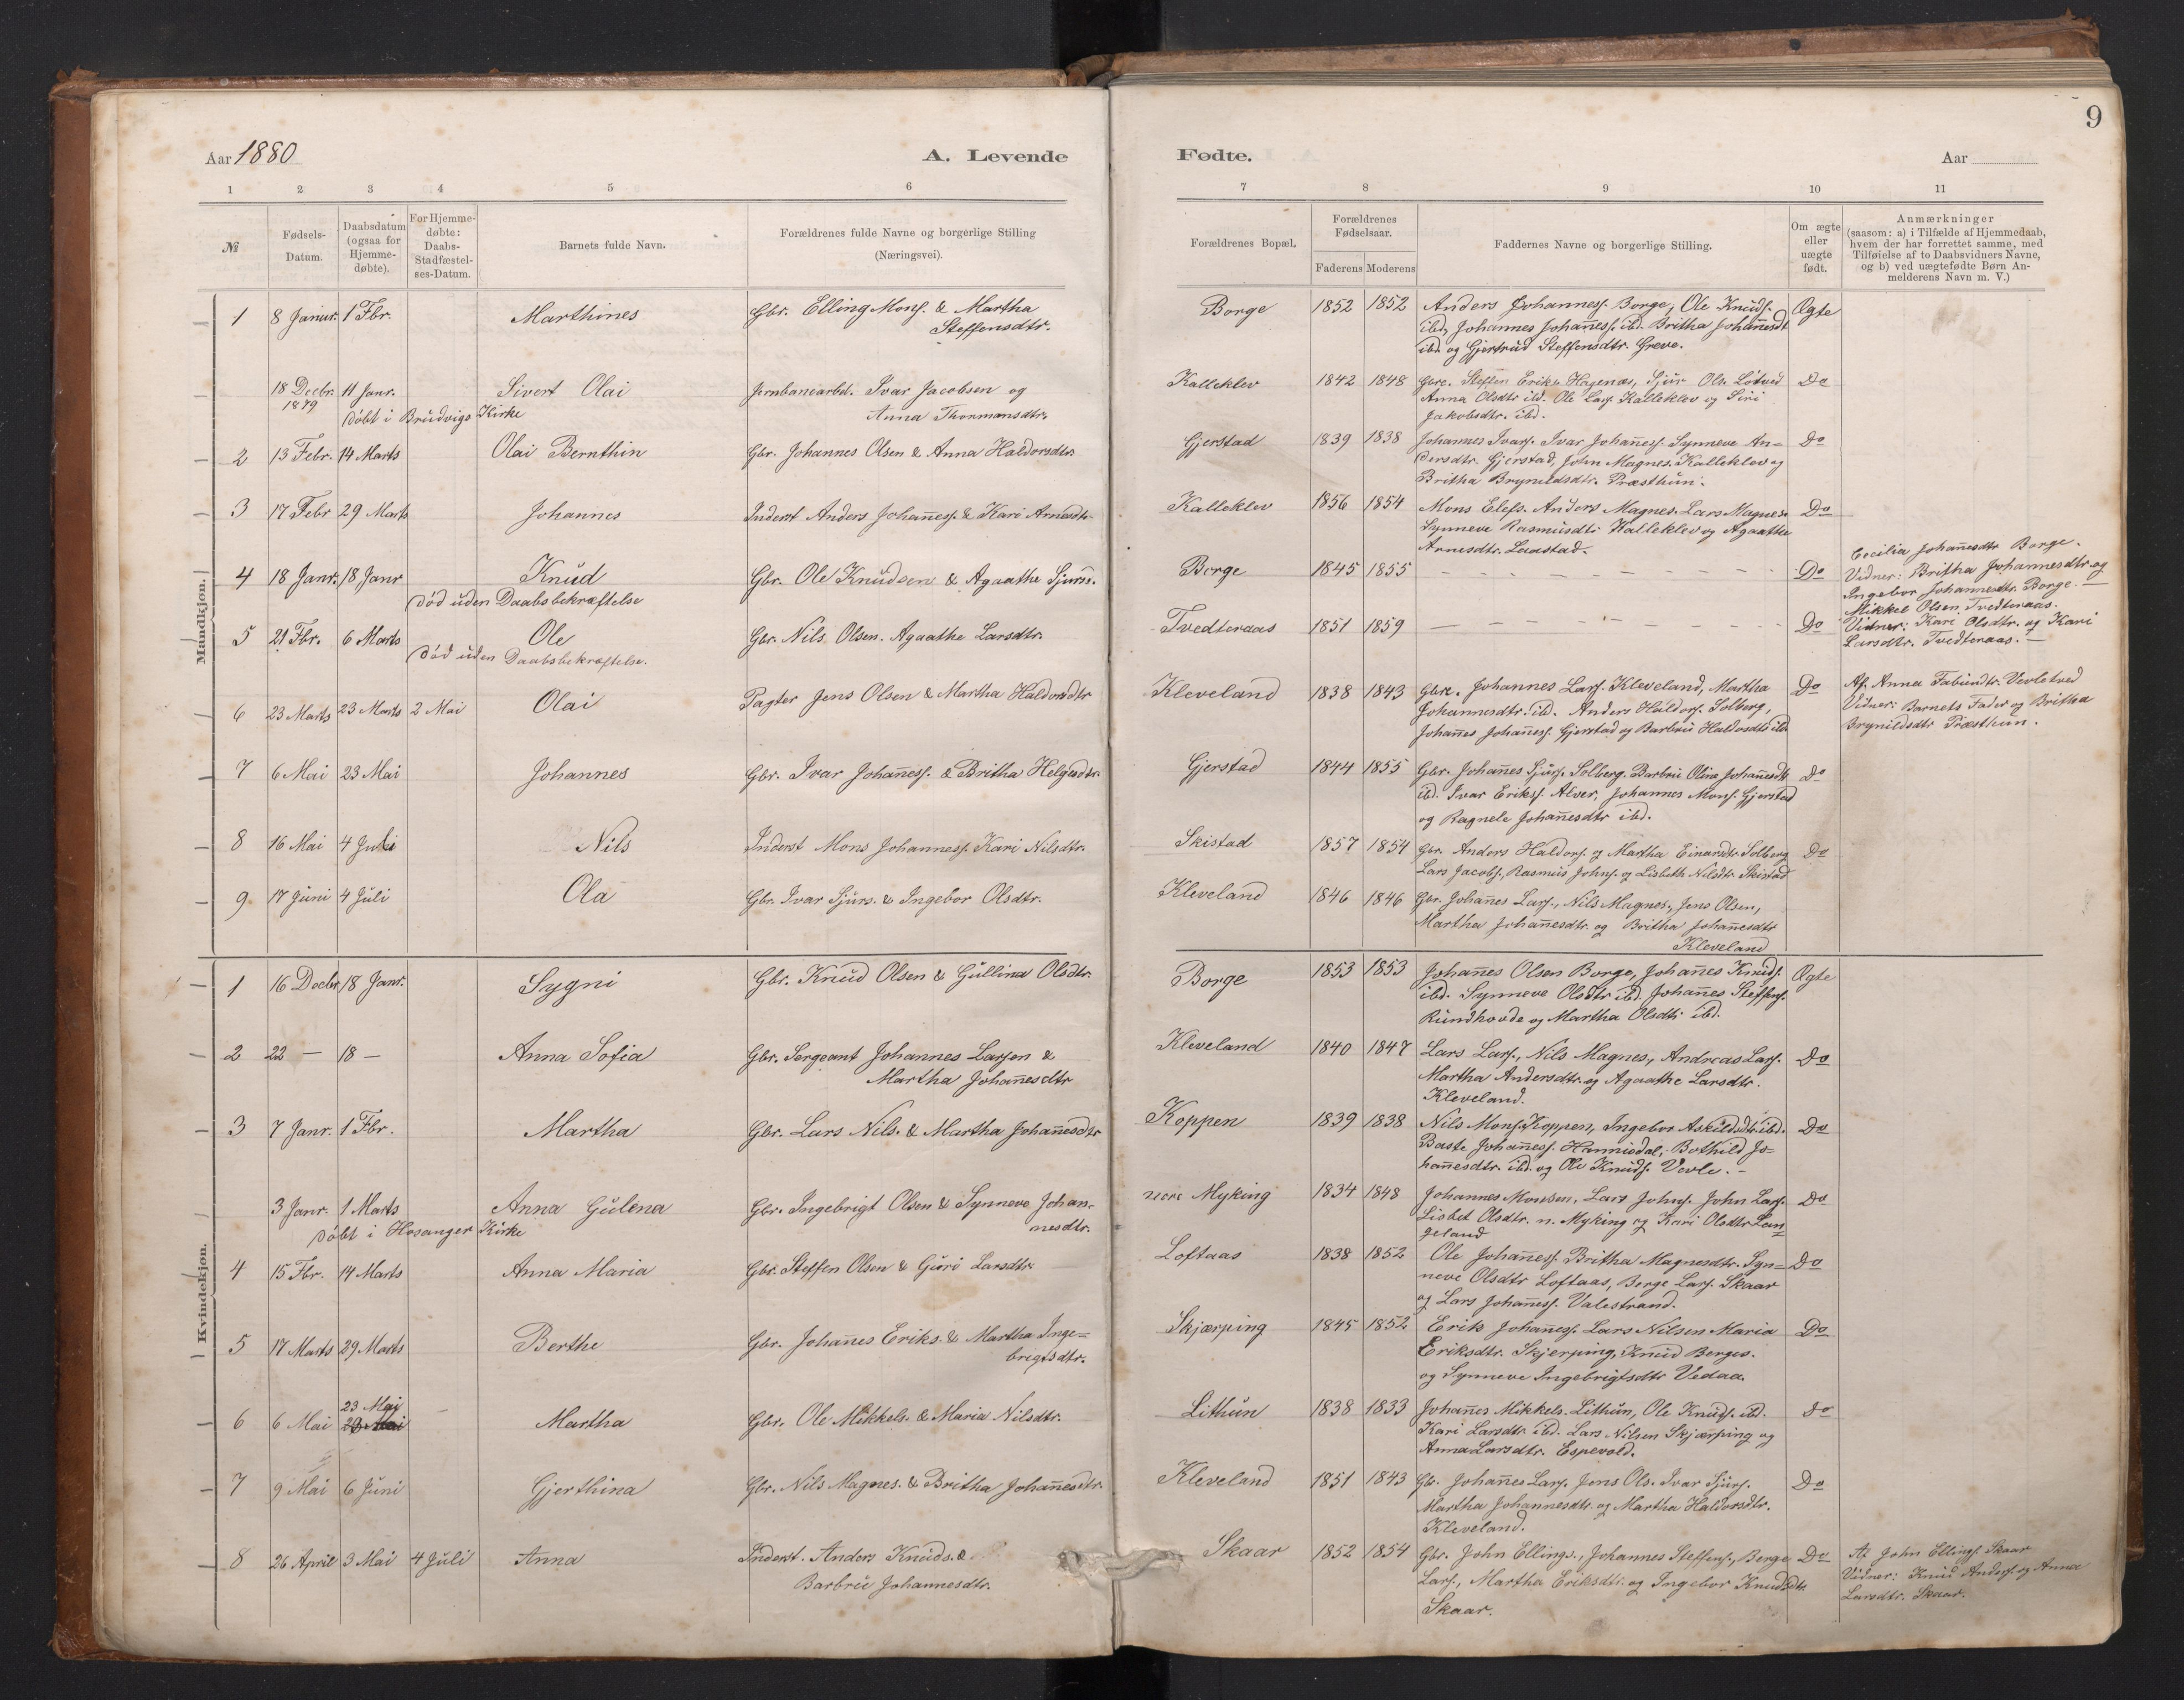 9
Aar 1880
A. Levende
Fødte.
Aar
1 2 3 4 5 6 7 8 9 10 11
№
Fødsels-
Datum.
Daabsdatum
(ogsaa for
Hjemme-
døbte).
For Hjemme-
døbte:
Daabs-
Stadfæstel-
ses-Datum.
Barnets fulde Navn.
Forældrenes fulde Navne og borgerlige Stilling
(Næringsvei).
Forældrenes Bopæl.
Forældrenes
Fødselsaar.
Faderens Moderens
Faddernes Navne og borgerlige Stilling.
Om ægte
eller
uægte
født.
Anmærkninger
(saasom: a) i Tilfælde af Hjemmedaab,
hvem der har forrettet samme, med
Tilføielse af to Daabsvidners Navne,
og b) ved uægtefødte Børn An-
melderens Navn m. V.)
Mandkjøn.
1 8 Januar. 1 Fbr. Marthines Gbr. Elling Mons. & Martha
Steffensdtr.
Borge 1852 1852 Anders Johanness. Borge, Ole Knuds.
ibd, Johannes Johaness. ibd. Britha Johanesdt
ibd og Gjertrud Steffensdtr. Greve.
Ægte
18 Decbr. 11 Janr. Sivert Olai Jernbanearbei. Ivar Jacobsen og
1879
døbt i Brudvigs Kirke
Anna Thormansdtr.
Kalleklev 1842 1848 Gbre. Steffen Eriks Hagenæs, Sjur Ols. Løtved
Anna Olsdtr ibd. Ole Lars. Kalleklev og Siri
Jakobsdtr. ibd.
Do
2 13 Febr. 14 Marts Olai Bernthin Gbr. Johannes Olsen & Anna Haldorsdtr.
Gjerstad 1839 1838 Johannes Ivars. Ivar Johaness. Synneve An-
dersdtr. Gjerstad, John Magnes. Kalleklev og
Britha Brynildsdtr. Præsthun.
Do
3 17 Febr 29 Marts Johannes Inderst Anders Johaness. & Kari Arnesdtr.
Kalleklev 1856 1854 Mons Elefs. Anders Magnes. Lars Magnes.
Synneve Rasmusdtr Kalleklev og Agaathe
Arnesdtr. Laastad.
Do
4 18 Janr. 18 Janr Knud Gbr. Ole Knudsen & Agaathe Sjursd.
død uden Daabsbekræftelse
Borge 1845 1855 Do
Cecilia Johanesdtr Borge.
Vidner: Britha Johannesdtr og
Ingebor Johannesdtr. Borge.
5 21 Fbr. 6 Marts Ole Gbr. Nils Olsen. Agaathe Larsdtr.
død uden Daabsbekræftelse.
Tvedteraas 1851 1859 Do
Mikkel Olsen Tvedteraas.
Vidner: Kari Olsdtr. og Kari
Larsdtr. Tvedteraas.
6 23 Marts 23 Marts 2 Mai Olai Pagter Jens Olsen & Martha Haldorsdtr
Kleveland 1838 1843 Gbre. Johannes Lars. Kleveland, Martha
Johannesdtr. ibd. Anders Haldors. Solberg,
Johanes Johaness. Gjerstad og Barbru Haldosdtr ibd
Do
Af Anna Fabiandtr. Vevletved
Vidner: Barnets Fader og Britha
Brynildsdtr Præsthun.
7 6 Mai 23 Mai Johannes Gbr. Ivar Johaness. & Britha Helgesdtr.
Gjerstad 1844 1855 Gbr. Johanes Sjurs. Solberg. Barbru Olina Johanesdt
ibd. Ivar Erikss. Alver, Johannes Mons. Gjerstad
og Ragnele Johanesdtr ibd.
Do
8 16 Mai 4 Juli Nils Inderst Mons Johanness. Kari Nilsdtr.
Skistad 1857 1854 Gbr. Anders Haldors. og Martha Einarsdtr. Solberg
Lars Jacobs., Rasmus Johns. og Lisbeth Nilsdtr. Skistad
Do
9 17 Juni 4 Juli Ola Gbr. Ivar Sjurs. & Ingebor Olsdtr.
Kleveland 1846 1846 Gbr. Johanes Lars., Nils Magnes., Jens Olsen,
Martha Johanesdtr. og Britha Johanesdtr
Kleveland
Kvindekjøn.
1 16 Decbr 18 Janr. Sygni Gbr. Knud Olsen & Gullina Olsdtr.
Borge 1853 1853 Johanes Olsen Borge, Johanes Knuds.
ibd. Synneve Olsdtr ibd. Johanes Steffens.
Rundhovde og Martha Olsdtr ibd.
Ægte
2 22 — 18 — Anna Sofia Gbr. Sergeant Johannes Larsen &
Martha Johanesdtr
Kleveland 1840 1847 Lars Lars., Nils Magnes., Andreas Lars.
Martha Andersdtr. og Agaathe Larsdtr.
Kleveland.
Do
3 7 Janr. 1 Fbr. Martha Gbr. Lars Nils. & Martha Johanesdtr
Koppen 1839 1838 Nils Mons. Koppen, Ingebor Askildsdtr. ibd.
Baste Johaness. Hannisdal, Bothild Jo-
hanesdtr. ibd. og Ole Knuds. Vevle. -
Do
3 Janr. 1 Marts Anna Gulena Gbr. Ingebrigt Olsen & Synneve Johan-
døbt i Hosanger Kirke
nesdtr.
nere Myking 1834 1848 Johannes Monsen, Lars Johns. John Lars.
Lisbet Olsdtr. n. Myking og Kari Olsdtr Lan-
geland
Do
4 15 Fbr. 14 Marts Anna Maria Gbr. Steffen Olsen & Guri Larsdtr.
Loftaas 1838 1852 Ole Johaness. Britha Magnesdtr. Syn-
neve Olsdtr Loftaas, Berge Lars. Skaar
og Lars Johaness. Valestrand.
Do
5 17 Marts 29 Marts Berthe Gbr. Johanes Eriks. & Martha Inge-
brigtsdtr.
Skjærping 1845 1852 Erik Johaness. Lars Nilsen Maria
Eriksdtr. Skjerping, Knud Berges.
og Synneve Ingebrigtsdtr Vedaa.
Do
23 Mai
6 6 Mai Martha Gbr. Ole Mikkels. & Maria Nilsdtr.
Lithun 1838 1833 Johanes Mikkels. Lithun, Ole Knuds. ibd.
Kari Larsdtr ibd. Lars Nilsen Skjærping og
Anna Larsdtr. Espevold.
do
7 9 Mai 6 Juni Gjerthina Gbr. Nils Magnes. & Britha Johanesdtr.
Kleveland 1851 1843 Gb. Johanes Lars. Jens Ols. Ivar Sjurs.
Martha Johannesdtr. og Martha Haldorsdtr.
Kleveland.
Do
8 26 April 3 Mai 4 Juli Anna Inderst. Anders Knuds. &
Barbru Johannesdtr.
Skaar 1852 1854 Gbr. John Ellings., Johannes Steffens., Berge
Lars., Martha Eriksdtr. og Ingebor Knudsdtr
Skaar.
Do
Af John Ellings. Skaar
Vidner: Knud Anders. og Anna
Larsdtr. Skaar.